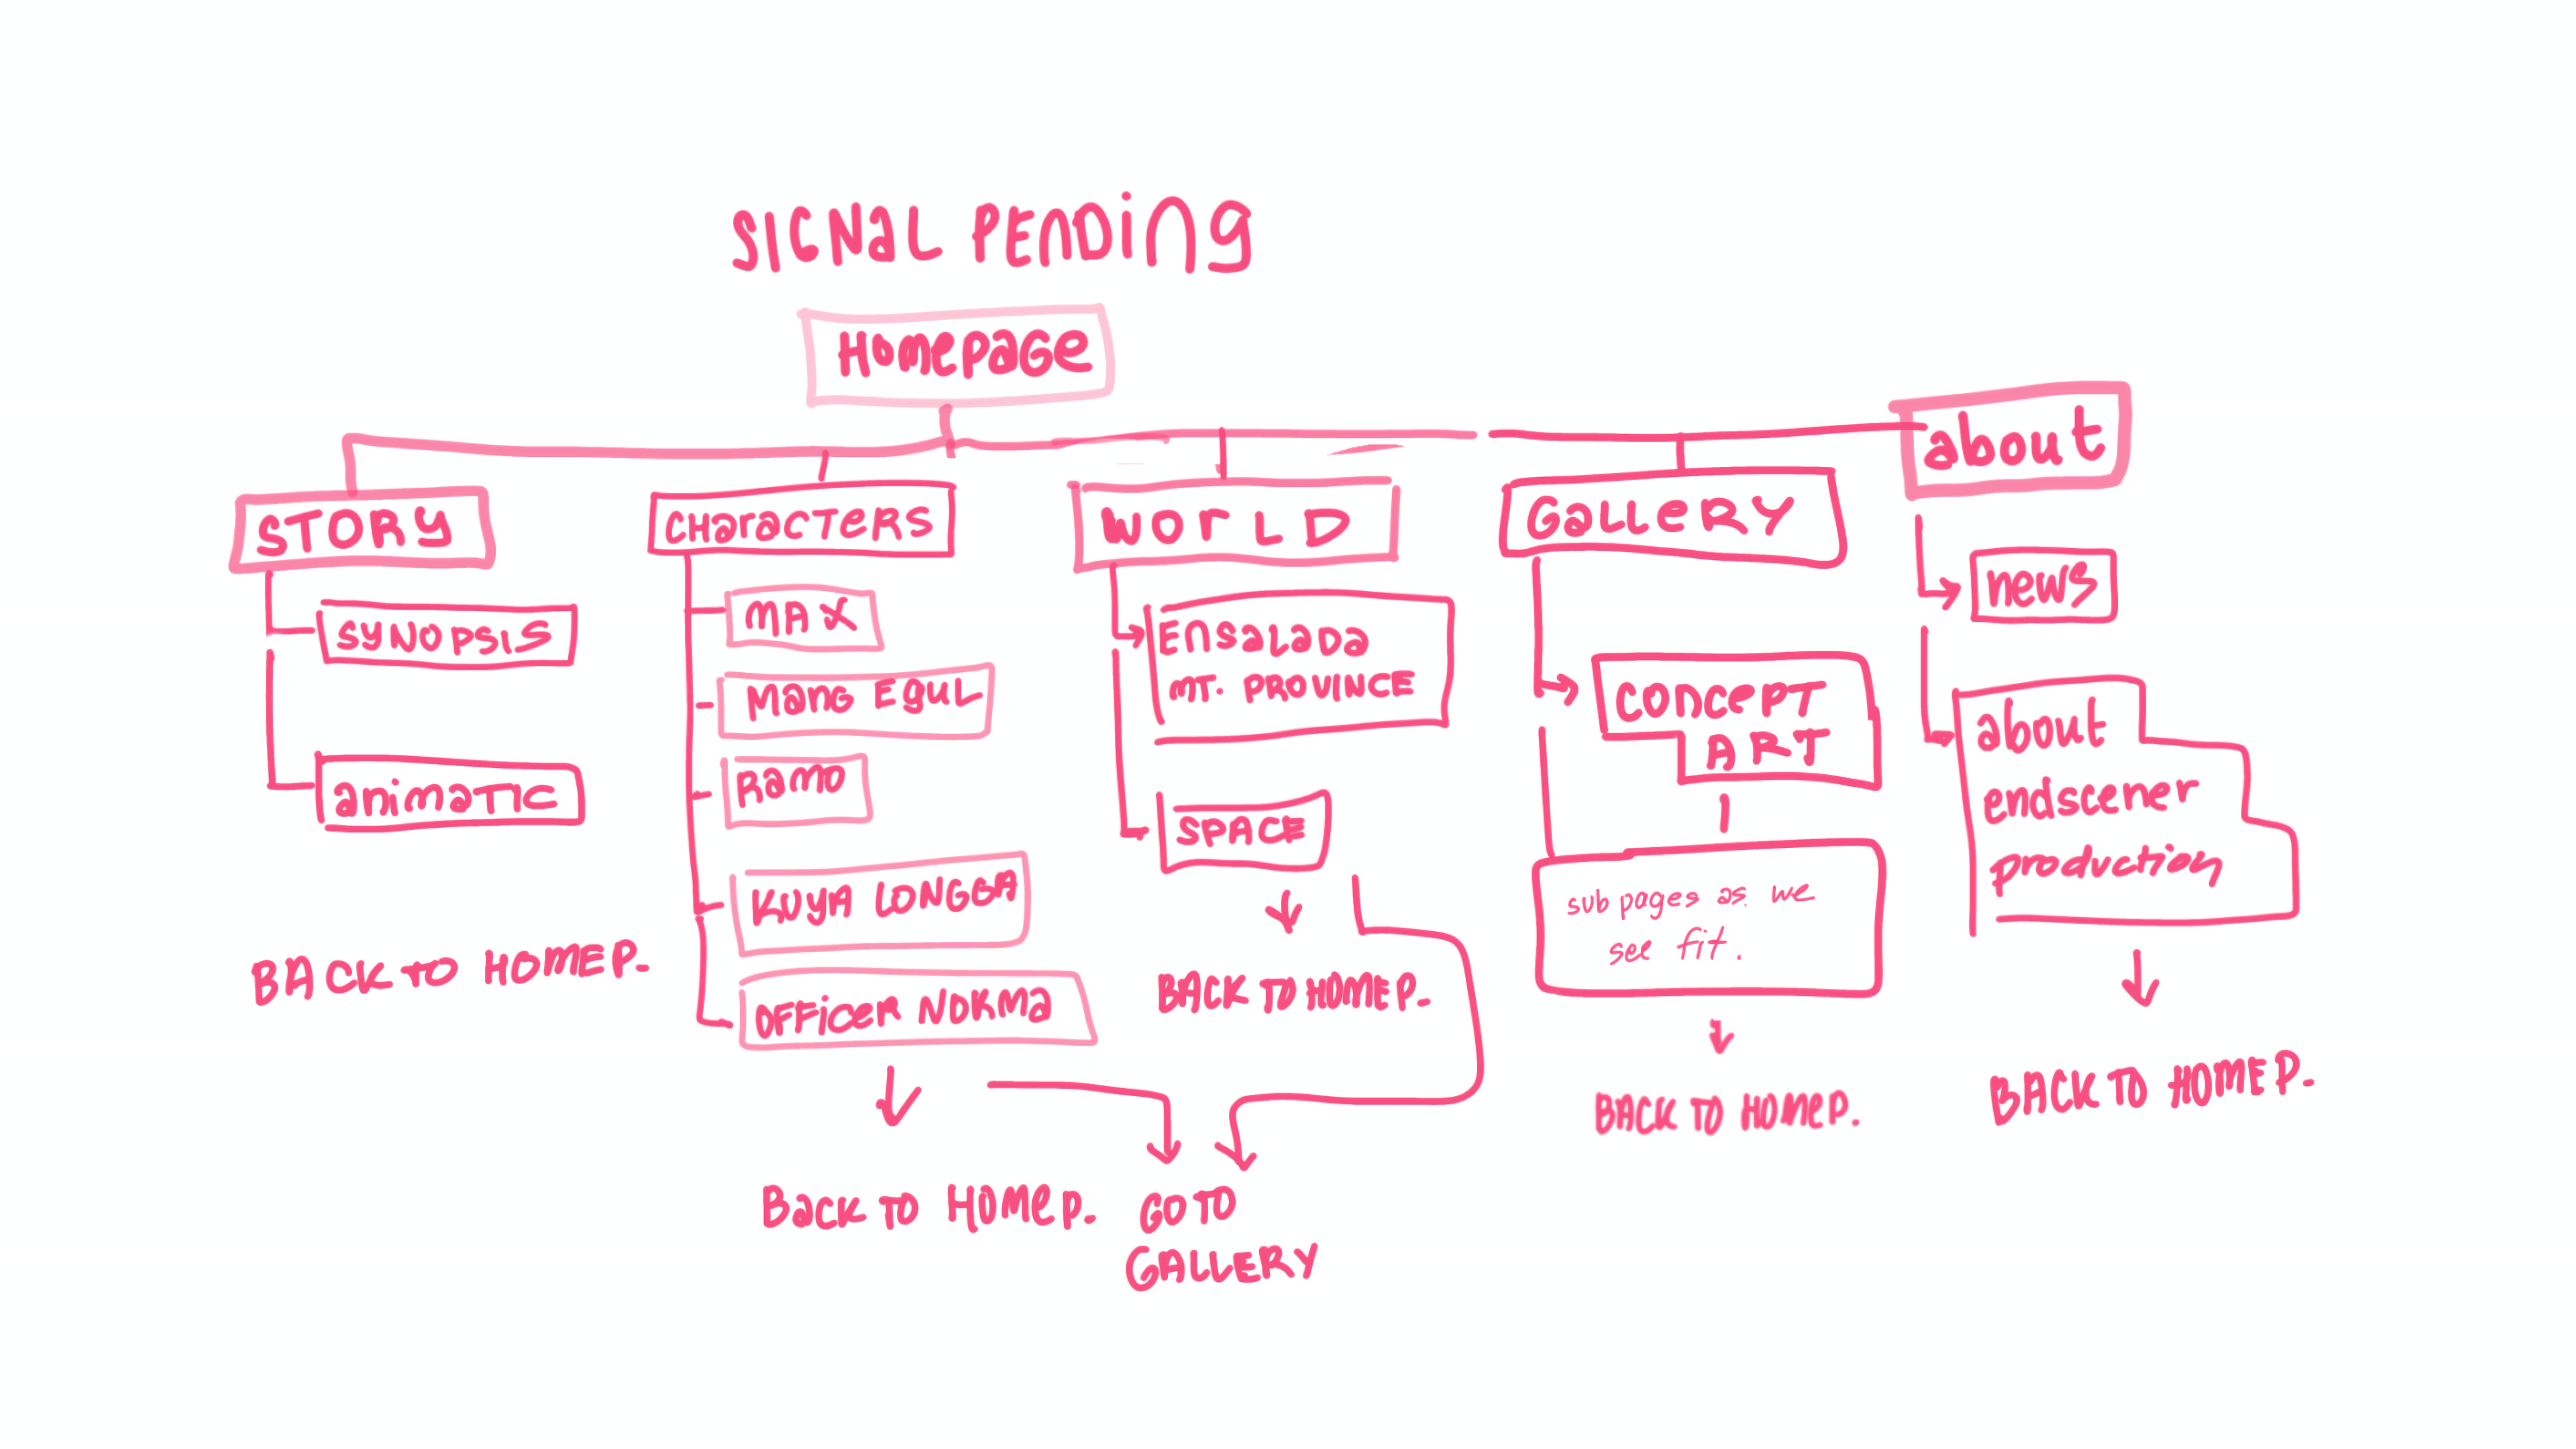 SIGNAL PENDING
Homepage
STORY
SYNOPSIS
animatic
BACK TO HOMEP.
CHaracters
MAX
Mang Egul
Ramo
KUYA LONGGA
OFFICER NORMA
Back to Homep.
WORLD
Ensalada
MT. PROVINCE
SPACE
BACK TO HOMEP.
GO TO
GALLERY
Gallery
concept
ART
sub pages as we
see fit.
BACK TO HOMEP.
about
news
about
endscener
production
BACK TO HOMEP.